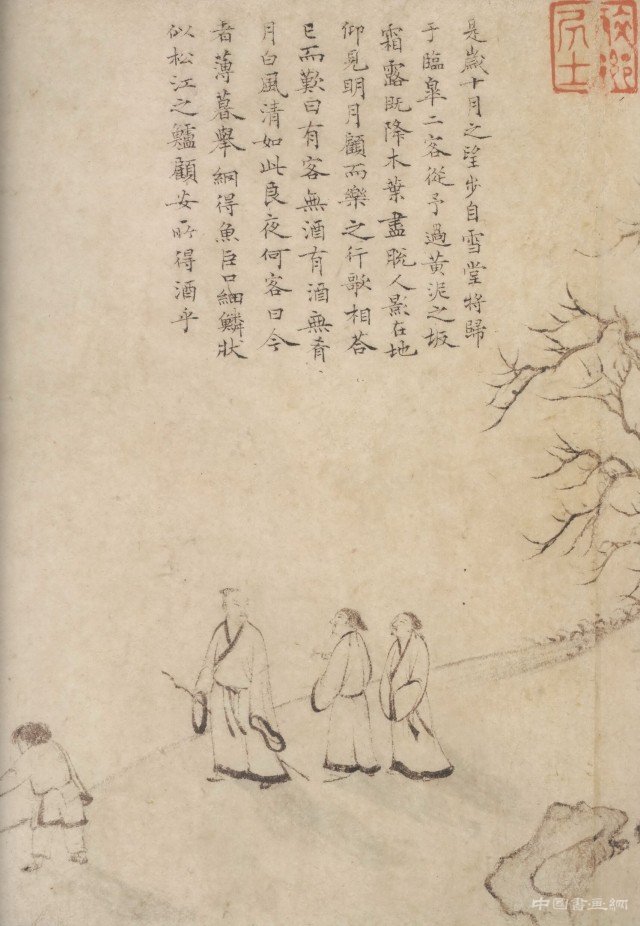 是歲十月之望步自雪堂將歸
于臨皋二客從予過黃泥之坂
霜露既降木葉盡脫人影在地
仰見明月顧而樂之行歌相荅
已而歎曰有客無酒有酒無肴
月白風清如此良夜何客曰今
者薄暮舉網得魚巨口細鱗狀
似松江之鱸顧安所得酒乎
中国書画網